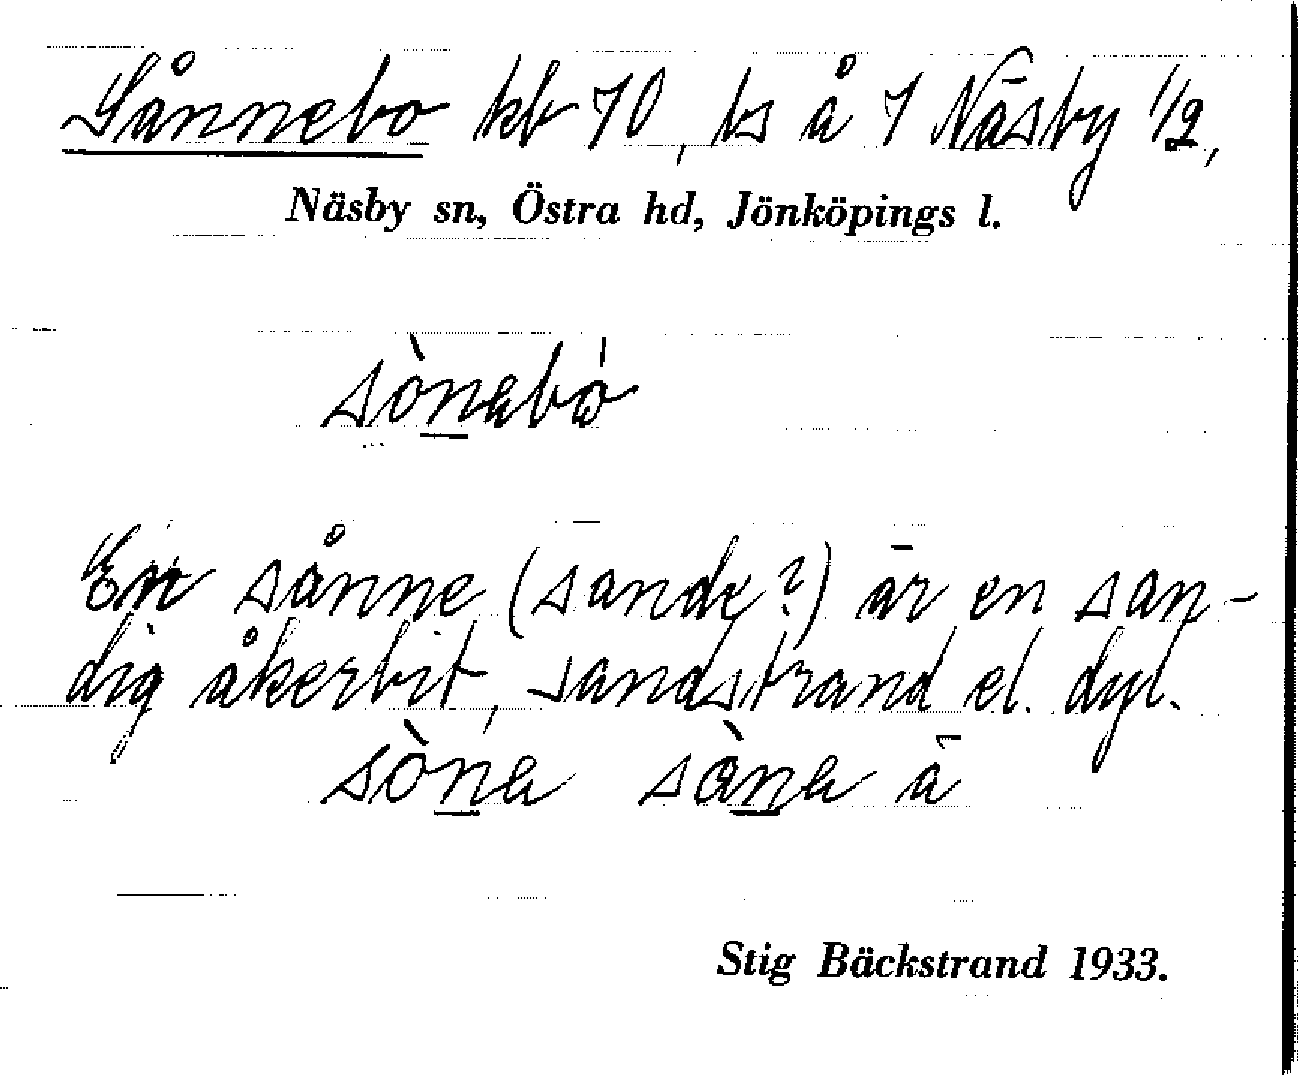 Sånnebo kb 70, ls å 7 Näsby 1/2,
Näsby sn, Östra hd, Jönköpings l.
sònebò
En sånne (sande?) är en san-
dig åkerbit, sandstrand el. dyl.
sòne sàne ä
Stig Bäckstrand 1933.